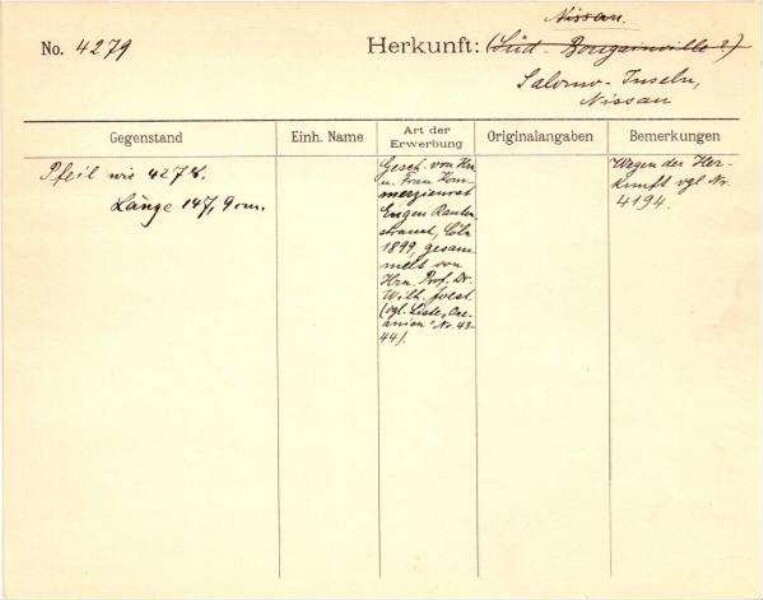 Nissan.
No. 4279 Herkunft: (Süd-Bougainville?)
Salomo-Inseln,
Nissan
Gegenstand Einh. Name Art der Erwerbung Originalangaben Bemerkungen
Pfeil wie 4278.
Länge 147,9 cm.
Gesch. von Hrn
u. Frau Kom-
merzienrat
Eugen Rauten-
strauch, Cöln
1899, gesam-
melt von
Hrn. Prof. Dr.
Wilh. Joest.
(vgl. Liste „Oze-
anien" Nr. 43-
44).
Wegen der Her-
kunft vgl. Nr.
4194.